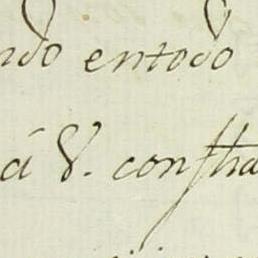 ndo entodo
á V. constra